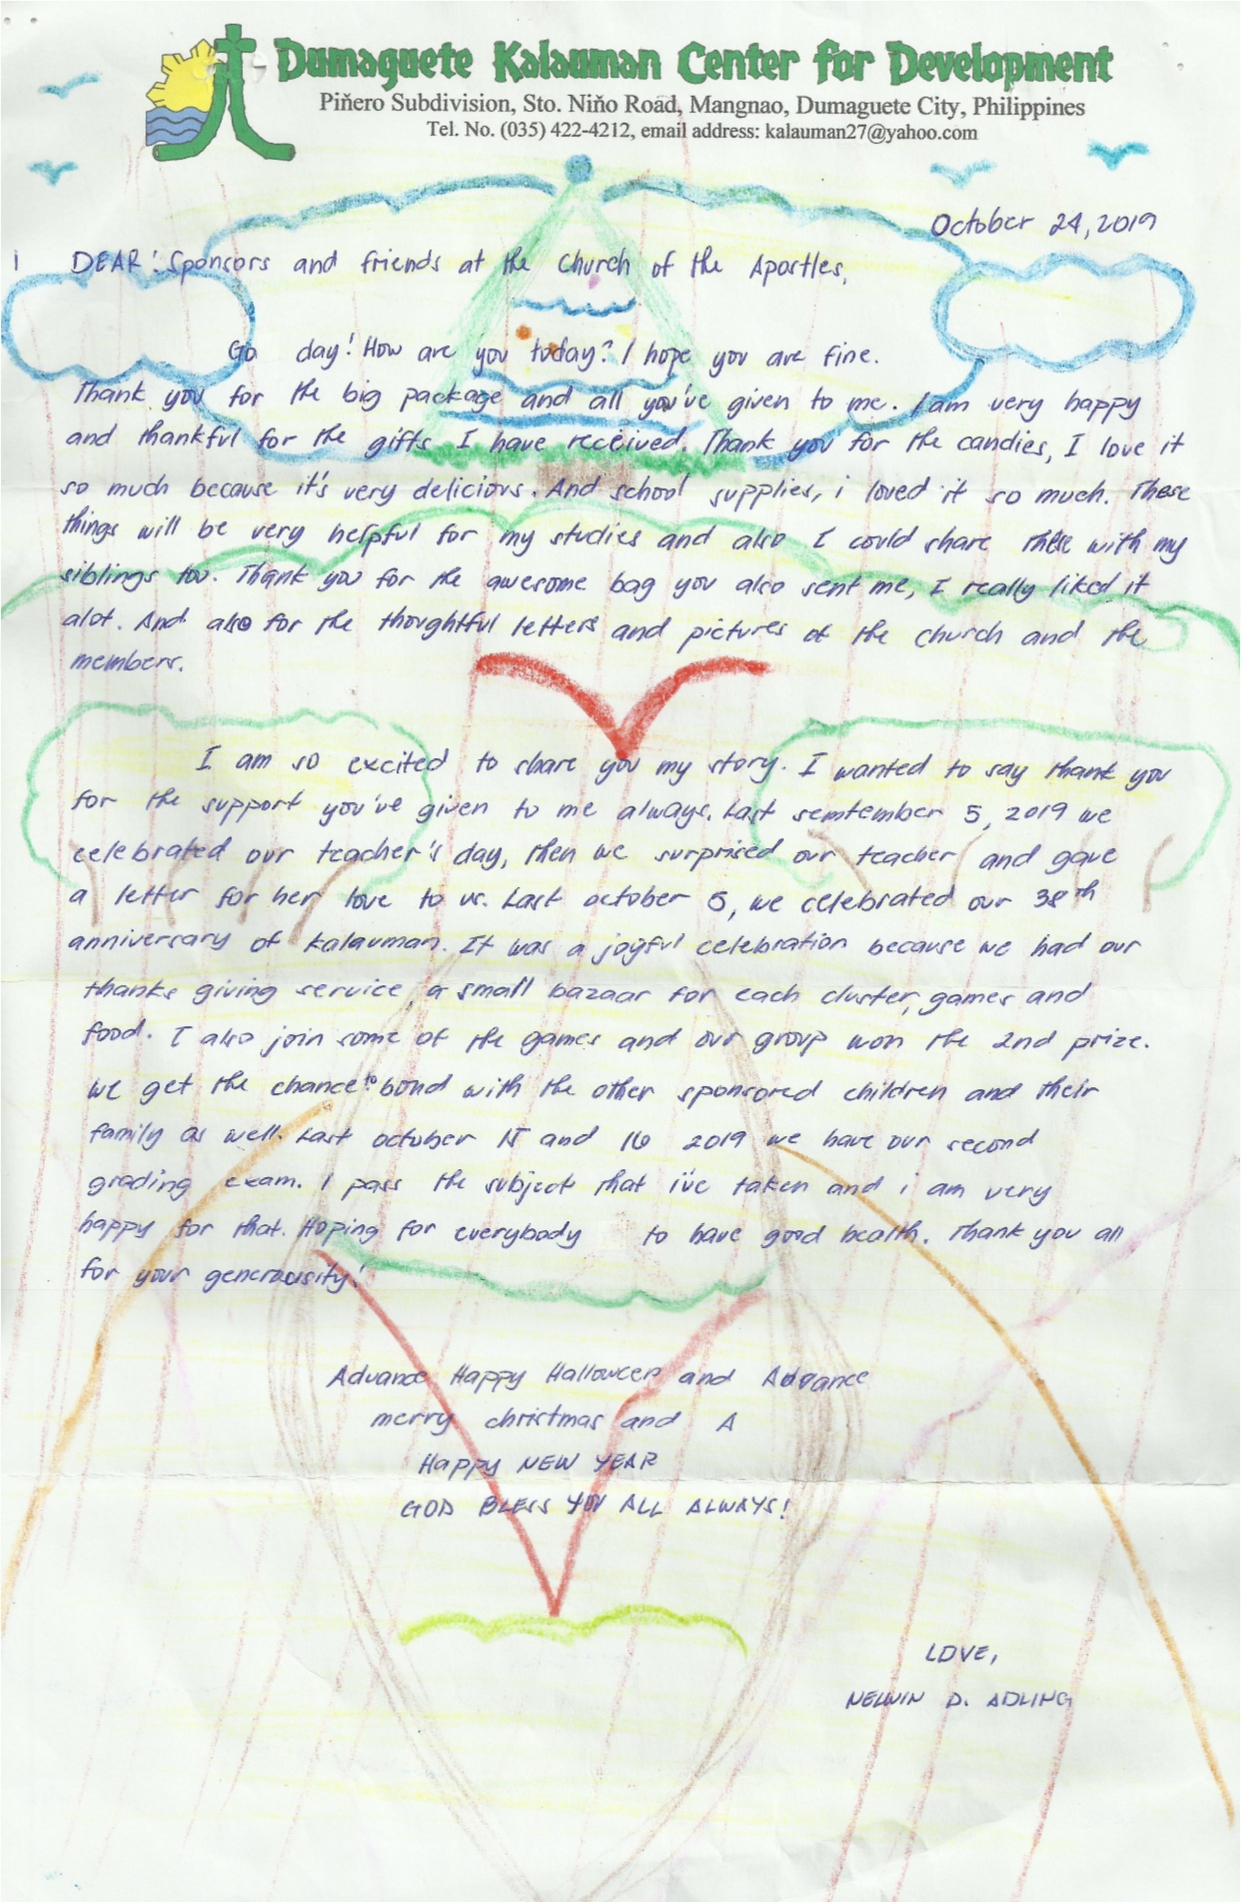 Dumaguete Kalauman Center for Development
Piñero Subdivision, Sto. Niño Road, Mangnao, Dumaguete City, Philippines
Tel. No. (035) 422-4212, email address: kalauman27@yahoo.com
October 24, 2019
DEAR: Sponsors and friends at the Church of the Apostles,
Go day! How are you today? I hope you are fine.
Thank you for the big package and all you've given to me. I am very happy
and thankful for the gifts I have received. Thank you for the candies, I love it
so much because it's very delicious. And school supplies, i loved it so much. These
things will be very helpful for my studies and also I could share these with my
siblings too. Thank you for the awesome bag you also sent me, I really liked it
alot. And also for the thoughtful letters and pictures of the church and the
members.
I am so excited to share you my story. I wanted to say thank you
for the support you've given to me always. Last semtember 5, 2019 we
celebrated our teacher's day, then we surprised our teacher and gave
a letter for her love to us. Last october 5, we celebrated our 38th
anniversary of kalauman. It was a joyful celebration because we had our
thanks giving service, a small bazaar for each cluster, games and
food. I also join some of the games and our group won the 2nd prize.
we get the chance to bond with the other sponsored children and their
family as well. Last october 15 and 16 2019 we have our second
grading exam. I pass the subject that i've taken and i am very
happy for that. Hoping for everybody to have good health. Thank you all
for your generousity!
Advance Happy Halloween and Advance
merry christmas and A
Happy NEW YEAR
GOD BLESS YOU ALL ALWAYS!
LOVE,
NELWIN D. ADLING